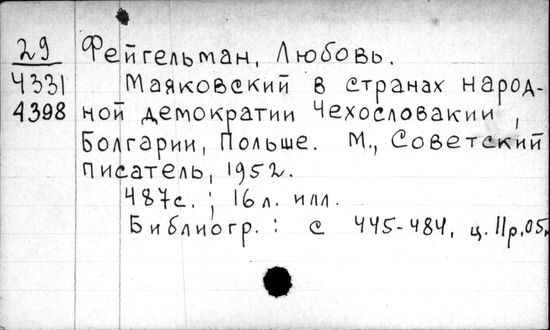 29 Фейгельман, Любовь.
4331 Маяковский в странах народ-
4398 ной демократии Чехословакии,
Болгарии, Польше. М., Советский
писатель, 1952.
487с.; 16 л. илл.
Библиогр.: с 445-484. ц. 11р.05к